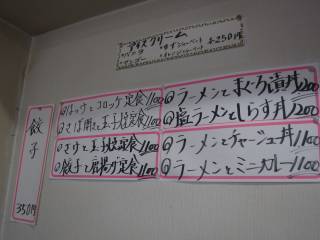 アイスクリーム
・バニラ ・ゆずシャーベット
各250円
餃子
350円
◎ほっけとコロッケ定食1100
◎さば開きと玉子焼定食1100
◎さけと玉子焼定食1100
◎餃子と唐揚げ定食1100
◎ラーメンとまぐろ漬丼1200
◎塩ラーメンとしらす丼1200
◎ラーメンとチャーシュー丼1100
◎ラーメンとミニカレー1100